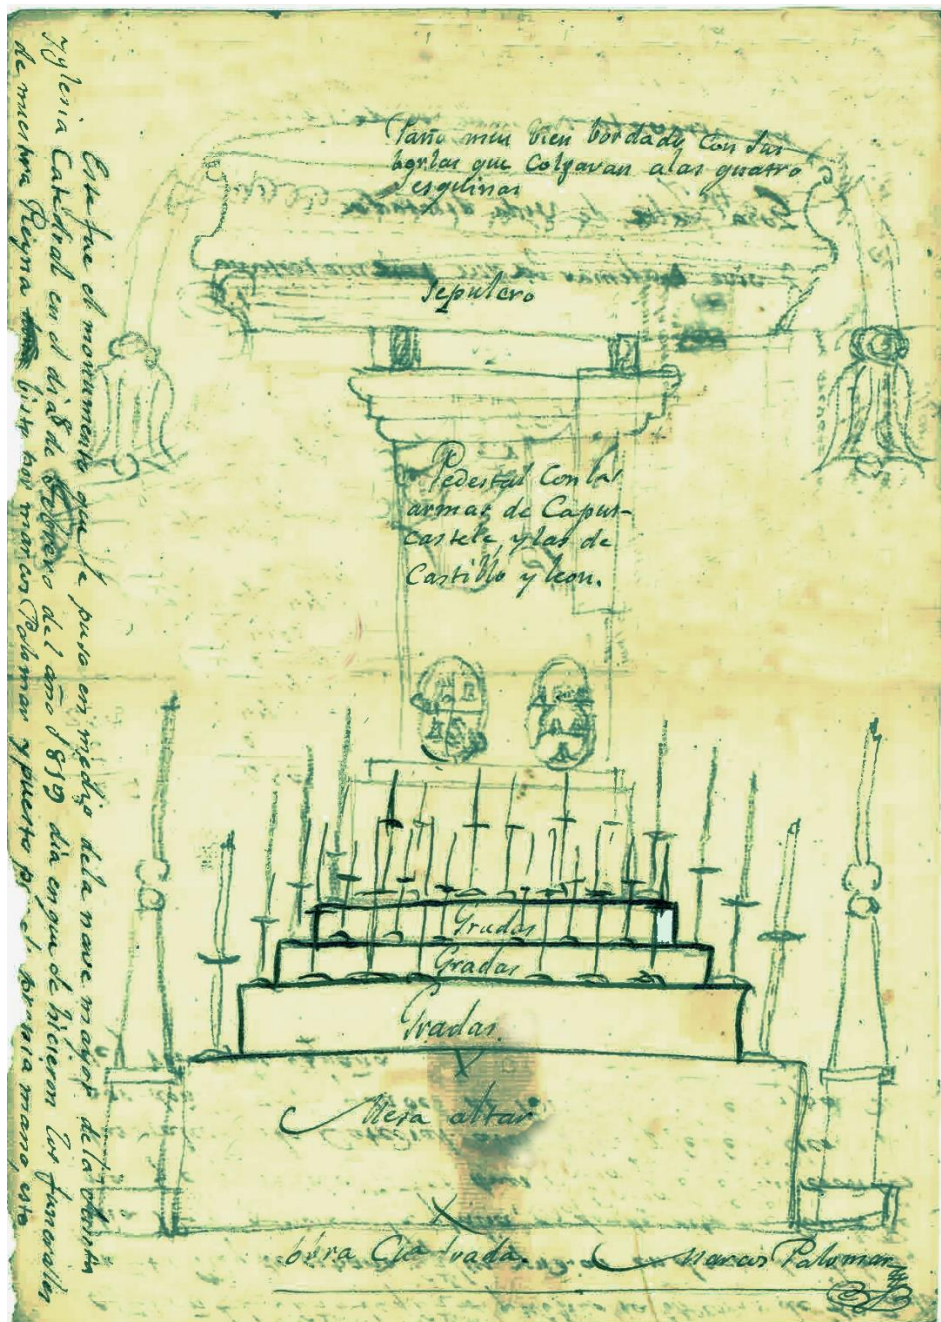 Paño mui bien bordado, con sus
borlas que Colgavan a las quatro
esquinas
Sepulcro
Pedestal con las
armas de Capus-
castele, y las de
Castillo y leon.
Gradas
Gradas
Gradas.
Mesa altar
obra Cuadrada.
Marcos Palomar
Este fue el monumento que se puso en medio dela nave mayor de la Santa
Yglesia Catedral en el dia 8 de Febrero del año 1819 dia en que se hicieron los funerales
de nuestra Reyna bisto por marcos Palomar y puesto pr el por mia mano esto